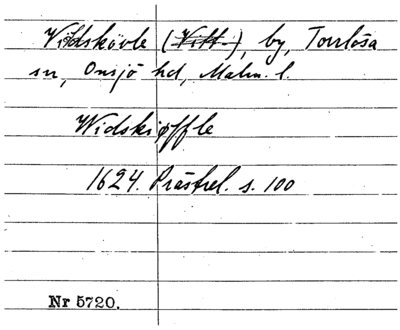 Vidskövle (Vitt-), by, Torrlösa
sn, Onsjö hd, Malm. l.
Widskiøffle
1624. Prästrel. s. 100
Nr 5720.